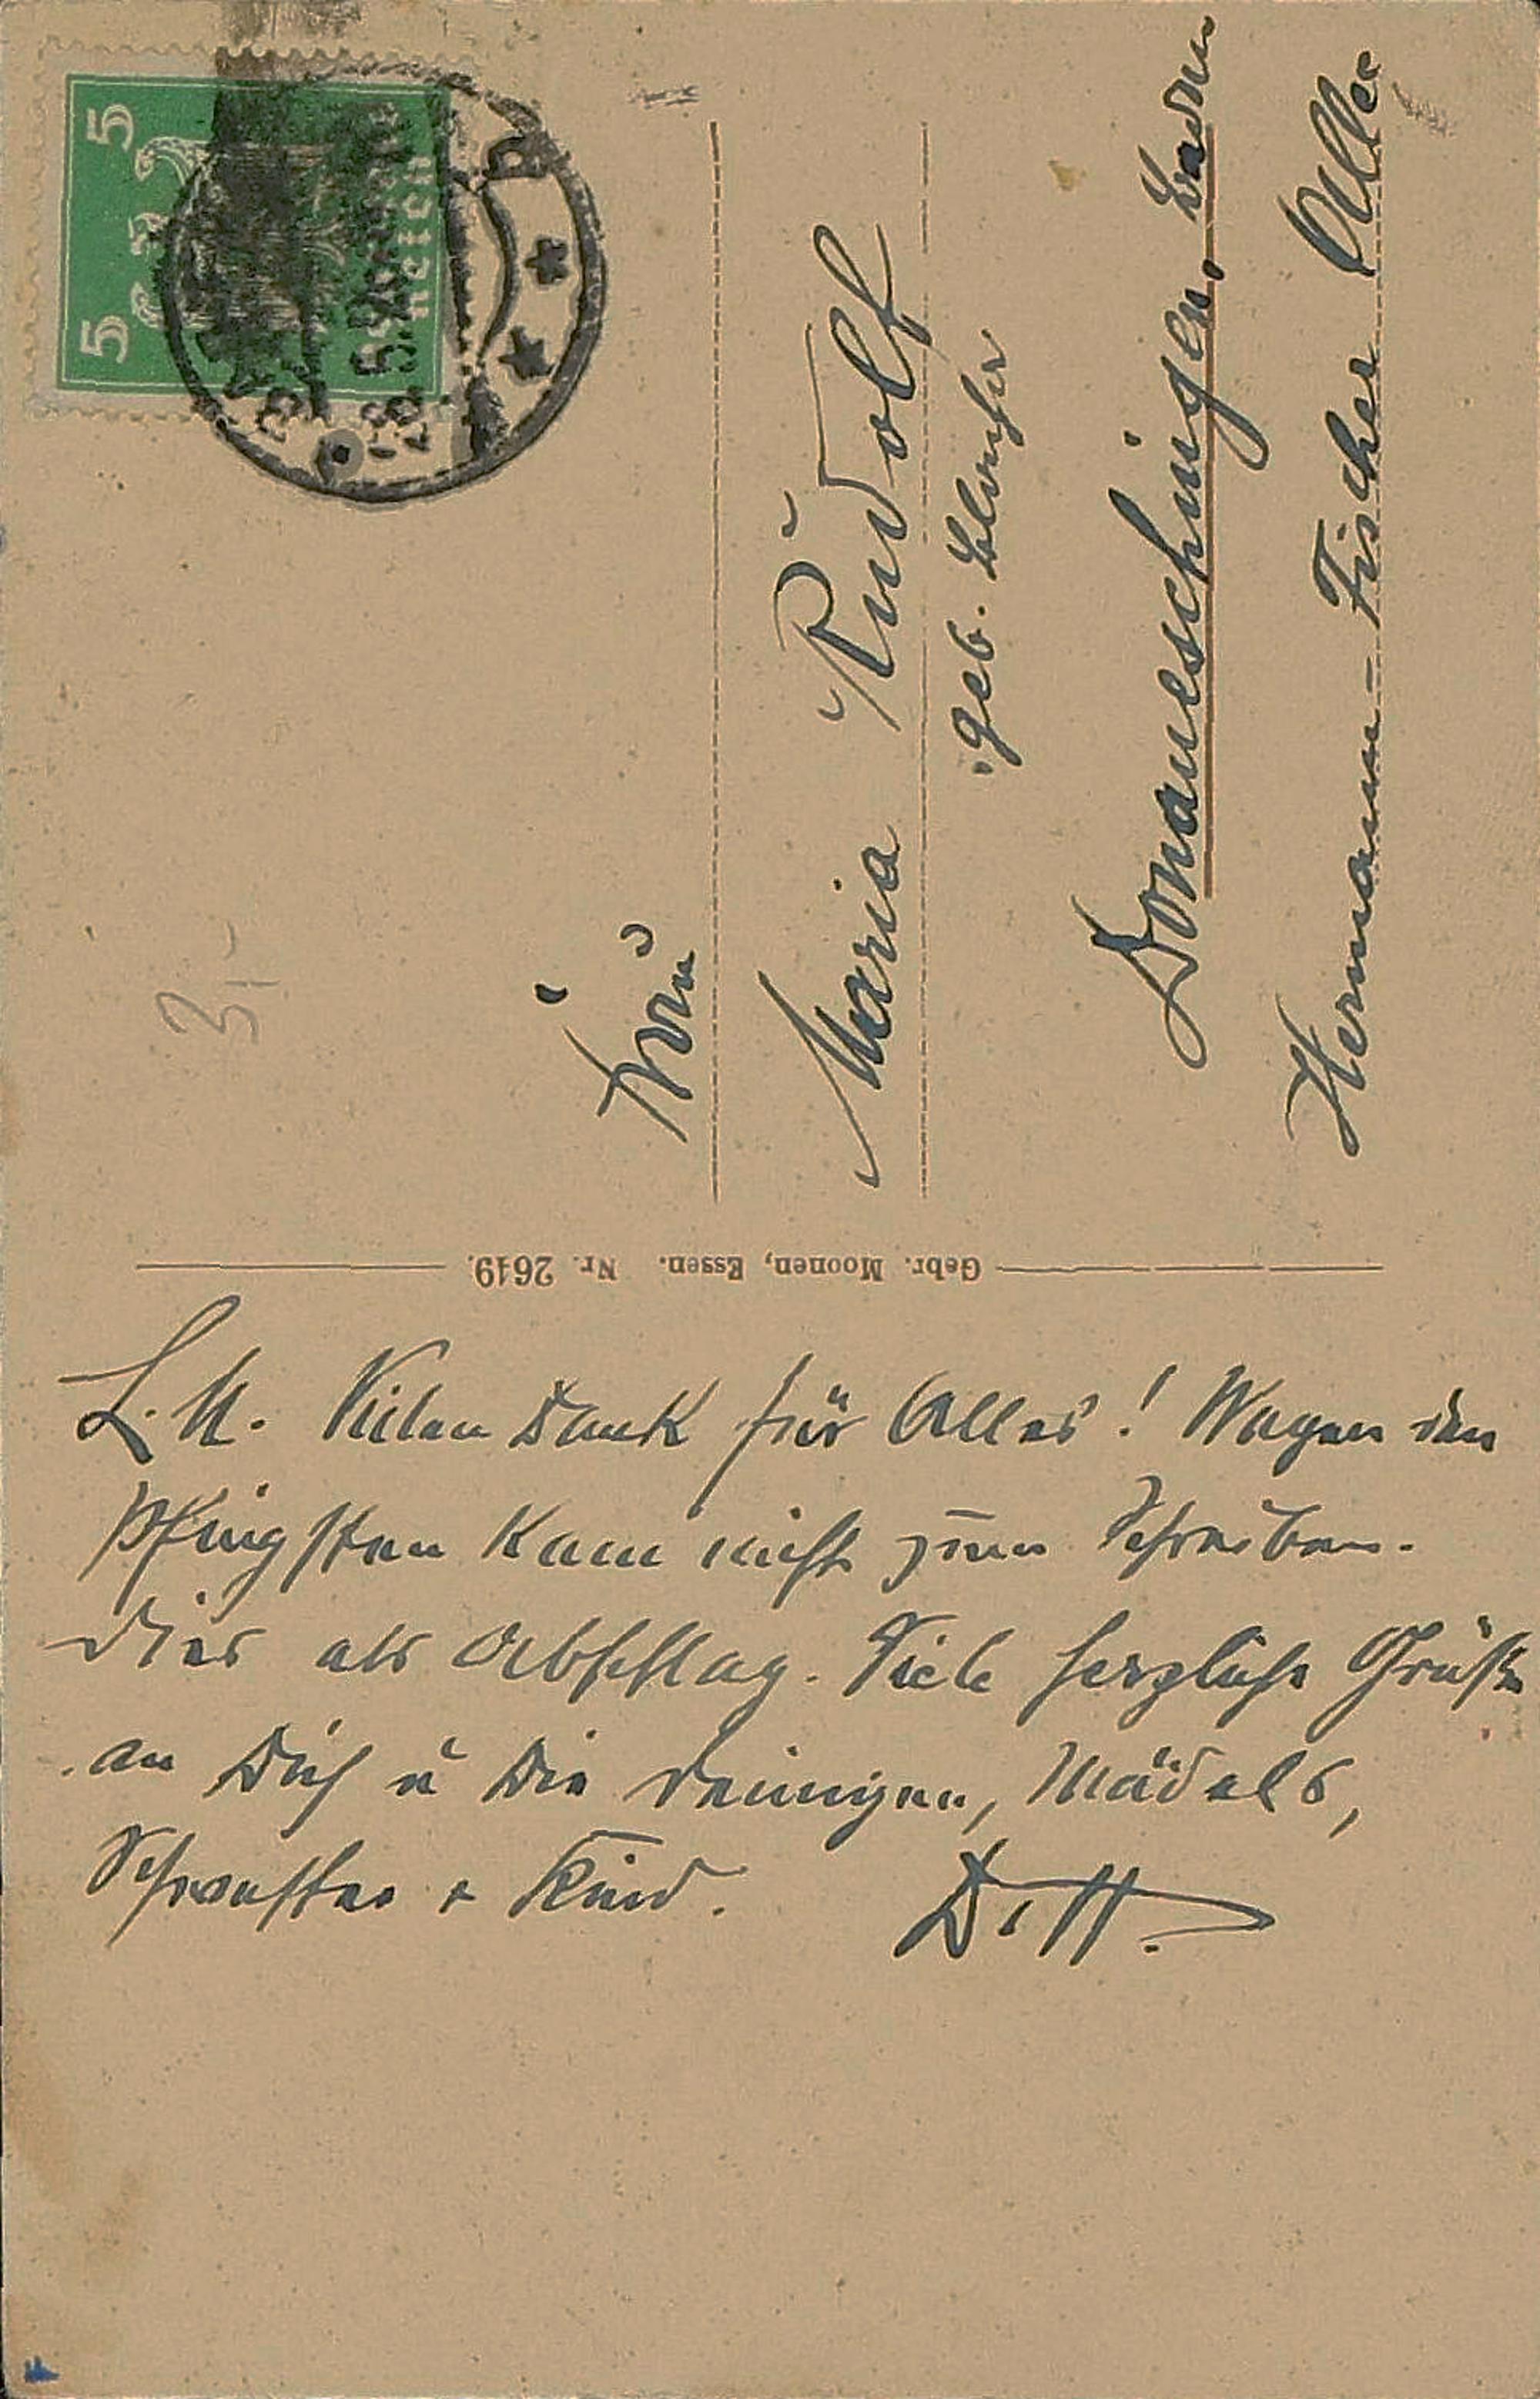 5 5
L. M. Vielen Dank für Alles! Wegen den
Pfingsten kam nicht zum Schreiben.
Dies als Abschlag. Viele herzliche Grüße
an Dich u die Deinigen, Mädels,
Schwester + Kind. D. H.
Gebr. Moonen, Essen. Nr. 2619.
Frau
Maria Rudolf
geb.
Donaueschingen, Baden
Hermann-Fischer Allee
3,-